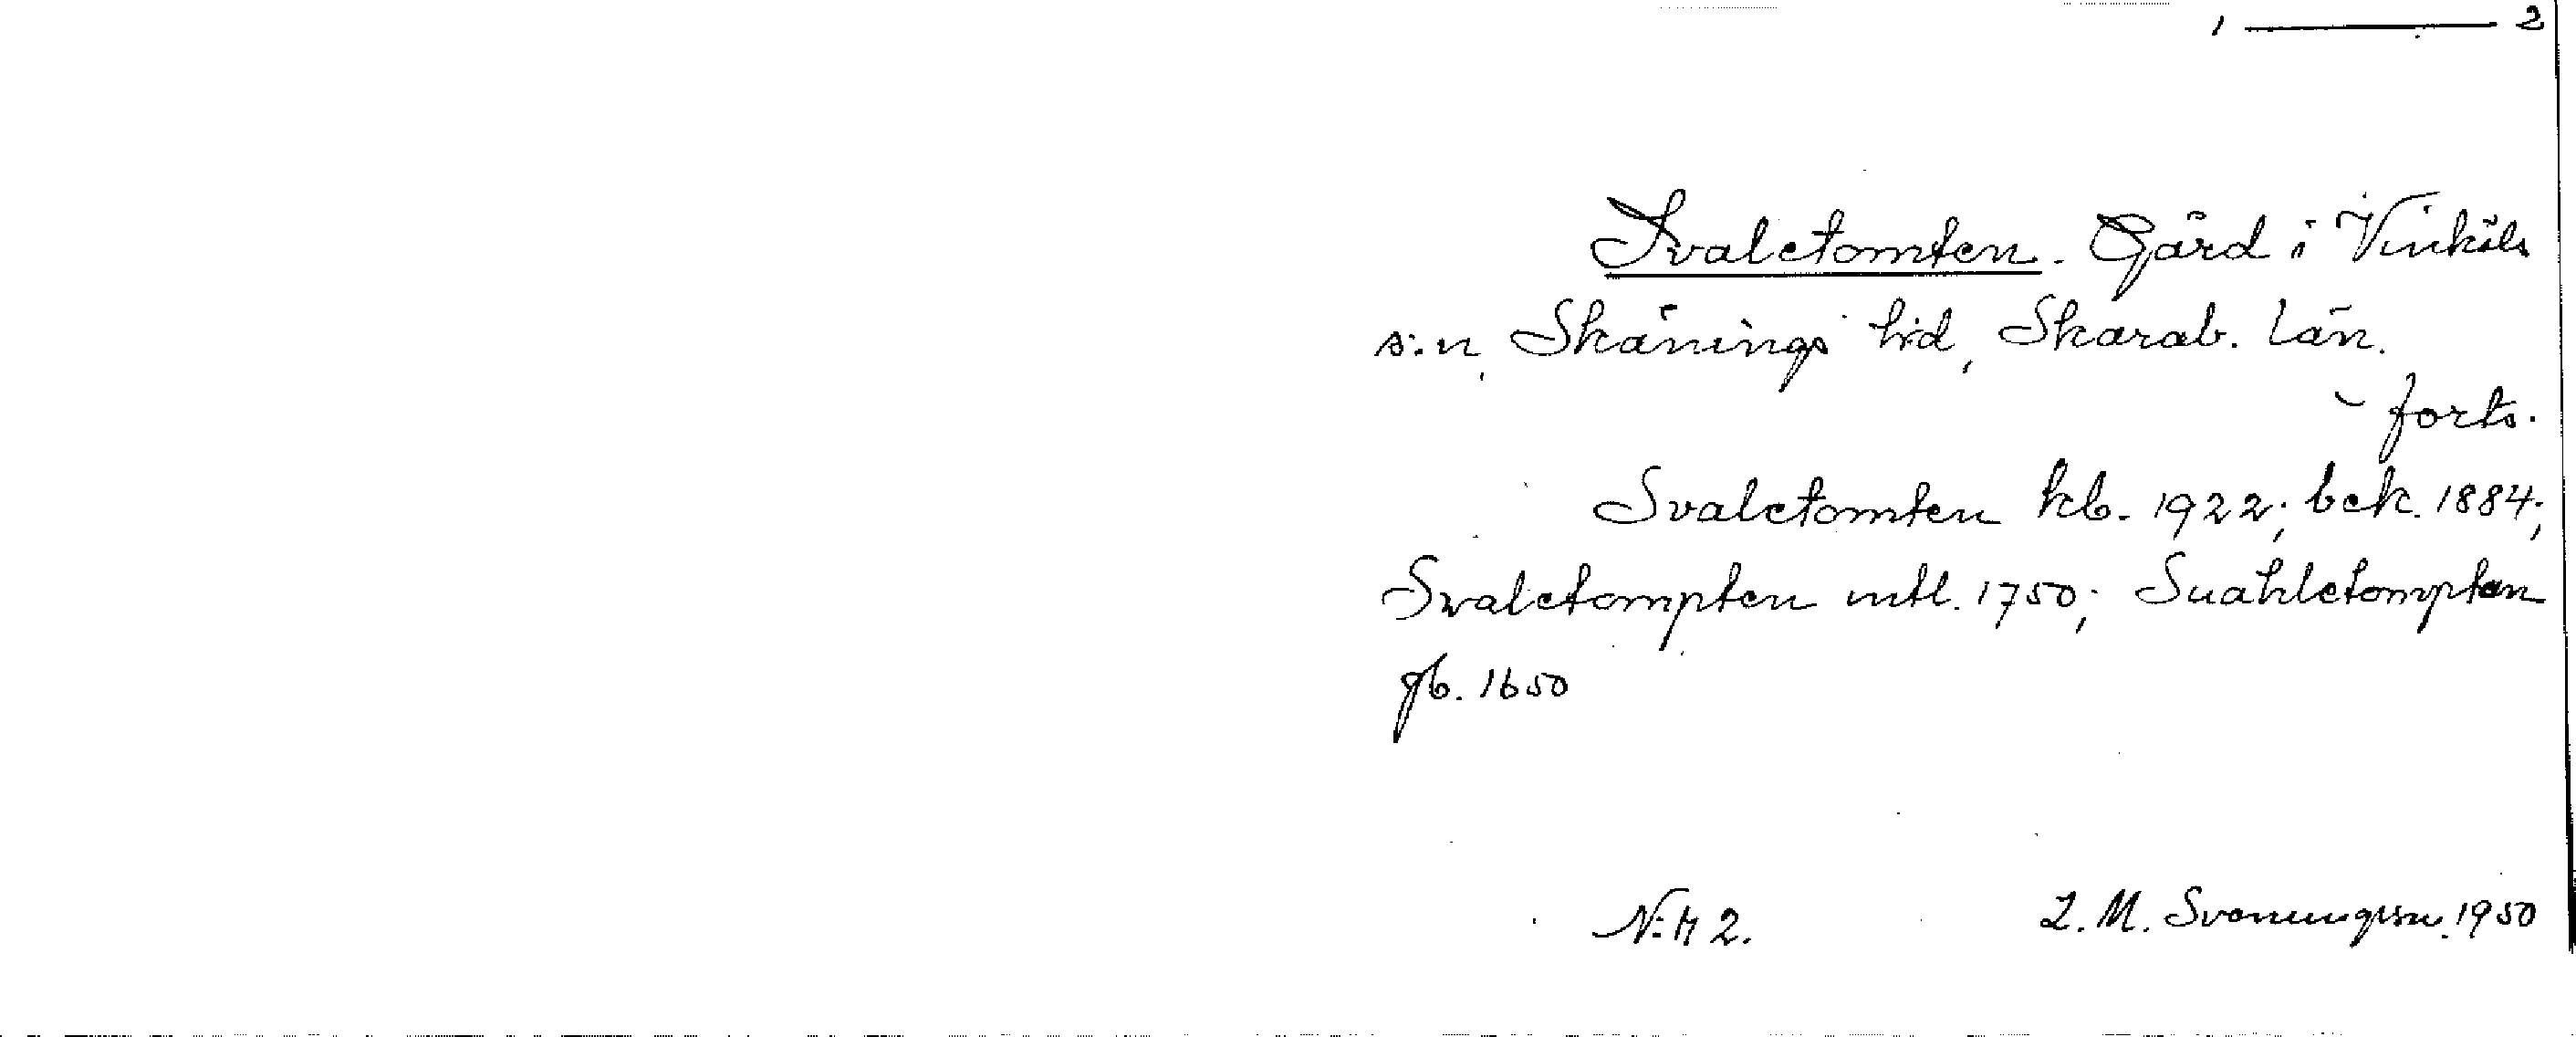 1 — 2
Svaletomten. Gård i Vinköls
s:n, Skånings hd, Skarab. län.
- forts.
Svaletomten kb. 1922; bek. 1884;
Svaletompten mtl. 1750; Suahletompten
gb. 1650
N:r 2. L. M. Svenungsson 1950